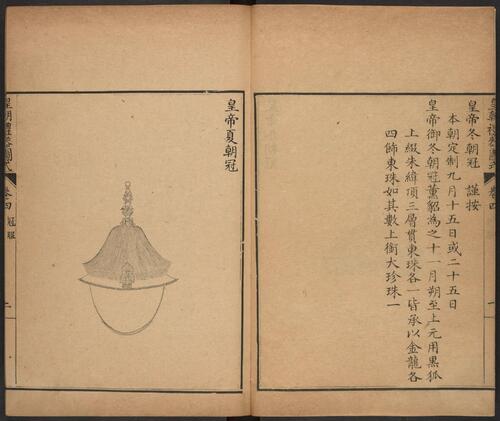 皇帝冬朝冠　謹按
本朝定制九月十五日或二十五日
皇帝御冬朝冠薰貂為之十一月朔至上元用黑狐
上綴朱緯頂三層貫東珠各一皆承以金龍各
四飾東珠如其數上銜大珍珠一
皇帝夏朝冠
皇朝禮器圖式
卷四
冠服
二